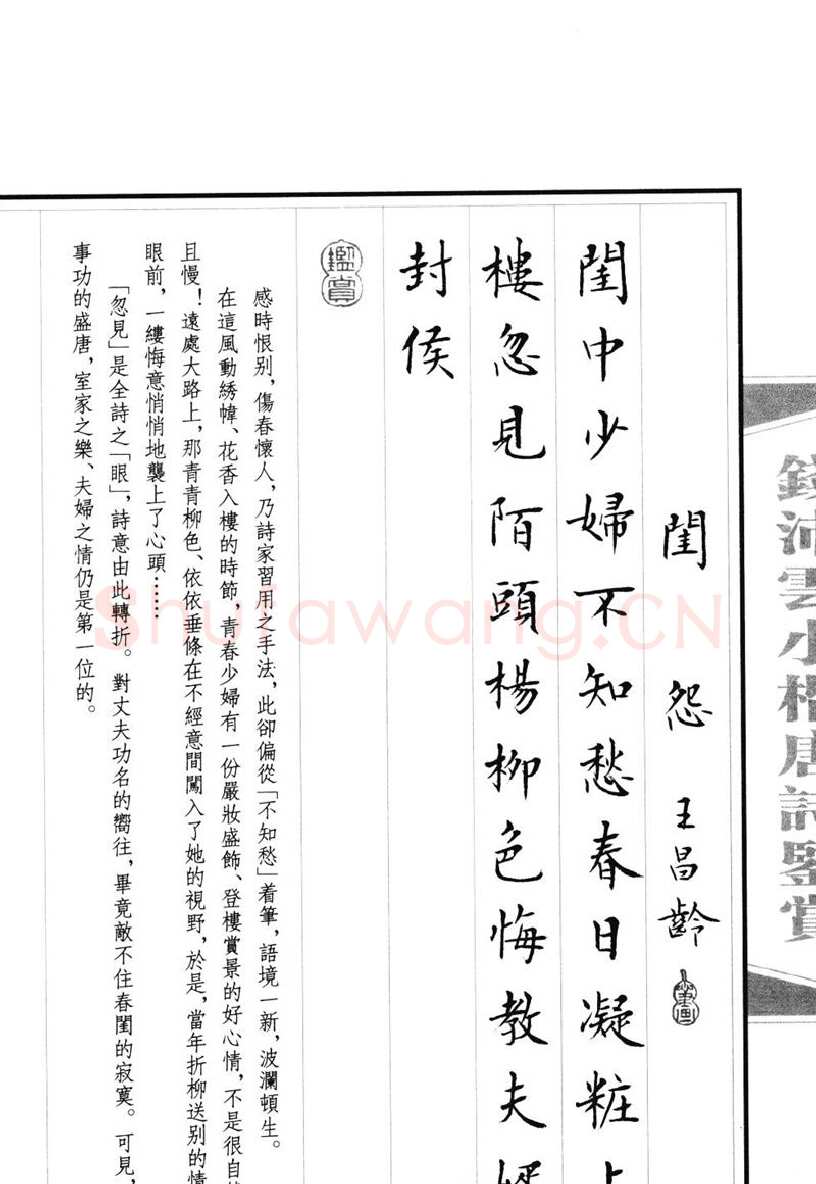 錢沛雲小楷唐詩鑒賞
閨 怨 王昌齡
閨中少婦不知愁春日凝粧上
樓忽見陌頭楊柳色悔教夫婿
封侯
鑑賞
感時恨别，傷春懷人，乃詩家習用之手法，此卻偏從「不知愁」着筆，語境一新，波瀾頓生。
在這風動綉幃、花香入樓的時節，青春少婦有一份嚴妝盛飾、登樓賞景的好心情，不是很自
且慢！遠處大路上，那青青柳色、依依垂條在不經意間闖入了她的視野，於是，當年折柳送别的情
眼前，一縷悔意悄悄地襲上了心頭……
「忽見」是全詩之「眼」，詩意由此轉折。對丈夫功名的嚮往，畢竟敵不住春閨的寂寞。可見，
事功的盛唐，室家之樂、夫婦之情仍是第一位的。
Shufawang.CN